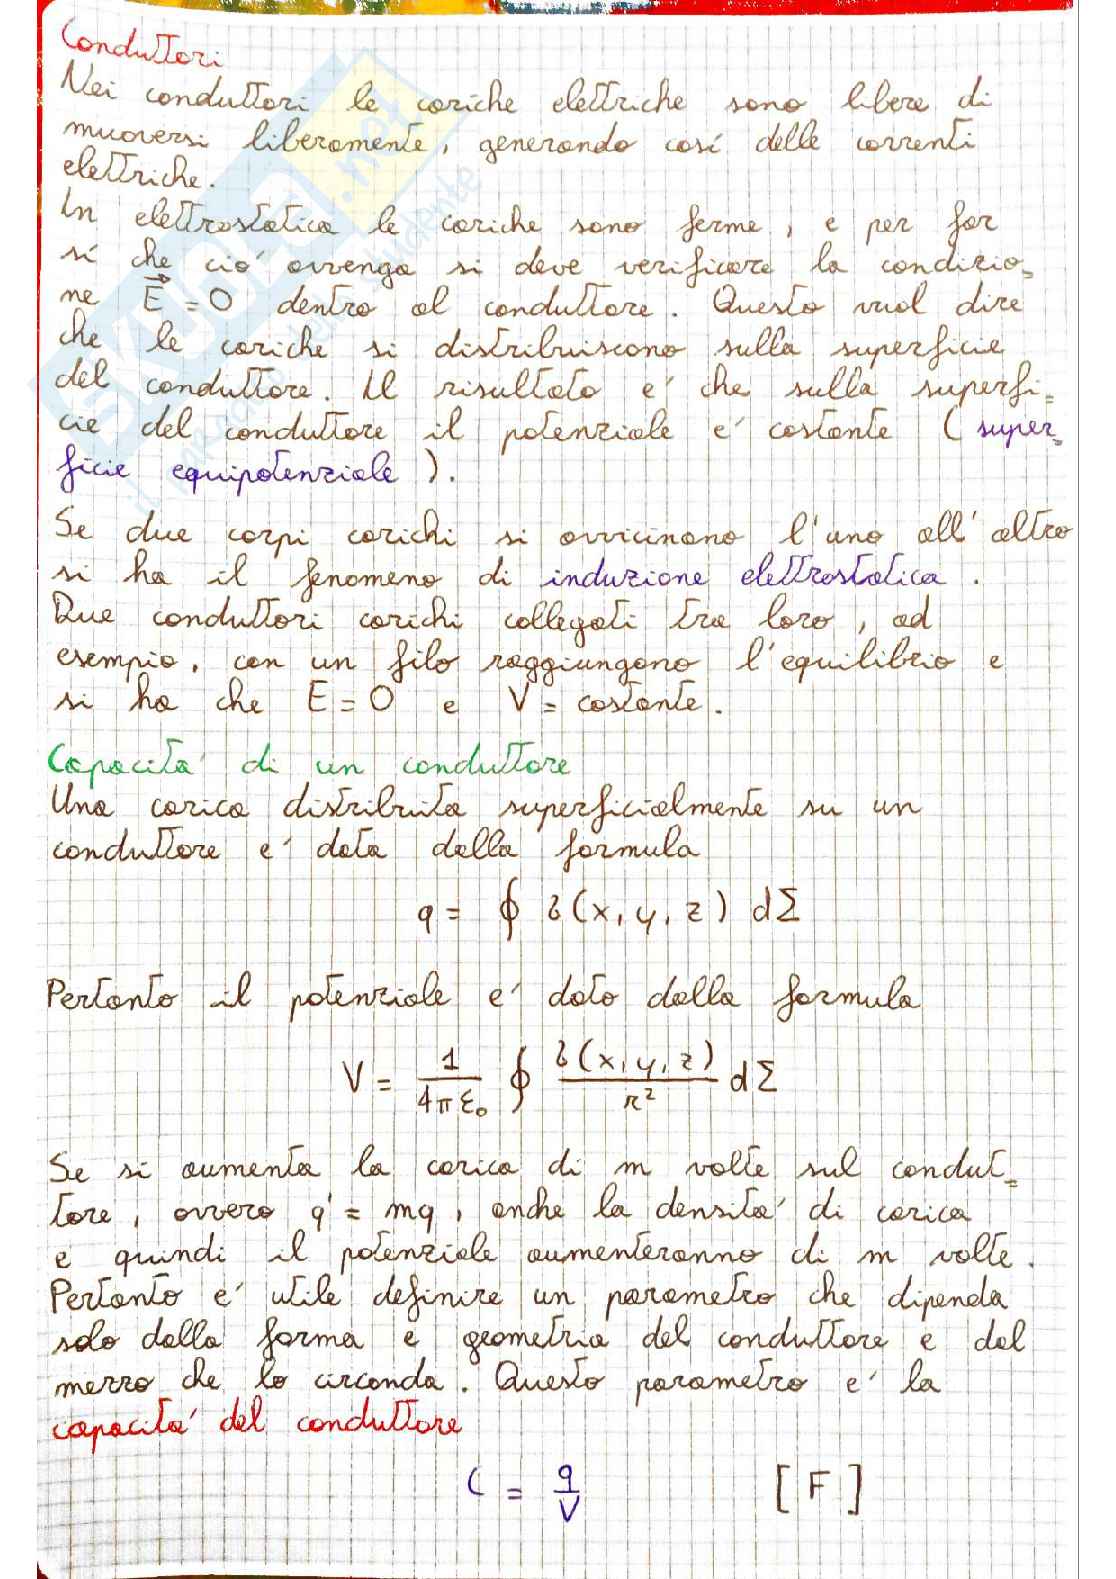 Conduttori
Nei conduttori le cariche elettriche sono libere di
muoversi liberamente, generando così delle correnti
elettriche.
In elettrostatica le cariche sono ferme, e per far
sí che ció avvenga si deve verificare la condizio=
ne E⃗ = 0 dentro al conduttore. Questo vuol dire
che le cariche si distribuiscono sulla superficie
del conduttore. Il risultato e' che sulla superfi=
cie del conduttore il potenziale e' costante (super=
ficie equipotenziale).
Se due corpi carichi si avvicinano l'uno all'altro
si ha il fenomeno di induzione elettrostatica.
Due conduttori carichi collegati tra loro, ad
esempio, con un filo raggiungono l'equilibrio e
si ha che E = 0 e V = costante.
Capacita' di un conduttore
Una carica distribuita superficialmente su un
conduttore e' data dalla formula
q = ∮ δ(x, y, z) dΣ
Pertanto il potenziale e' dato dalla formula
V = 1/(4πε₀) ∮ δ(x, y, z)/r² dΣ
Se si aumenta la carica di m volte sul condut=
tore, ovvero q' = mq, anche la densita' di carica
e quindi il potenziale aumenteranno di m volte.
Pertanto e' utile definire un parametro che dipenda
solo dalla forma e geometria del conduttore e dal
mezzo che lo circonda. Questo parametro e' la
capacita' del conduttore
C = q/V [F]